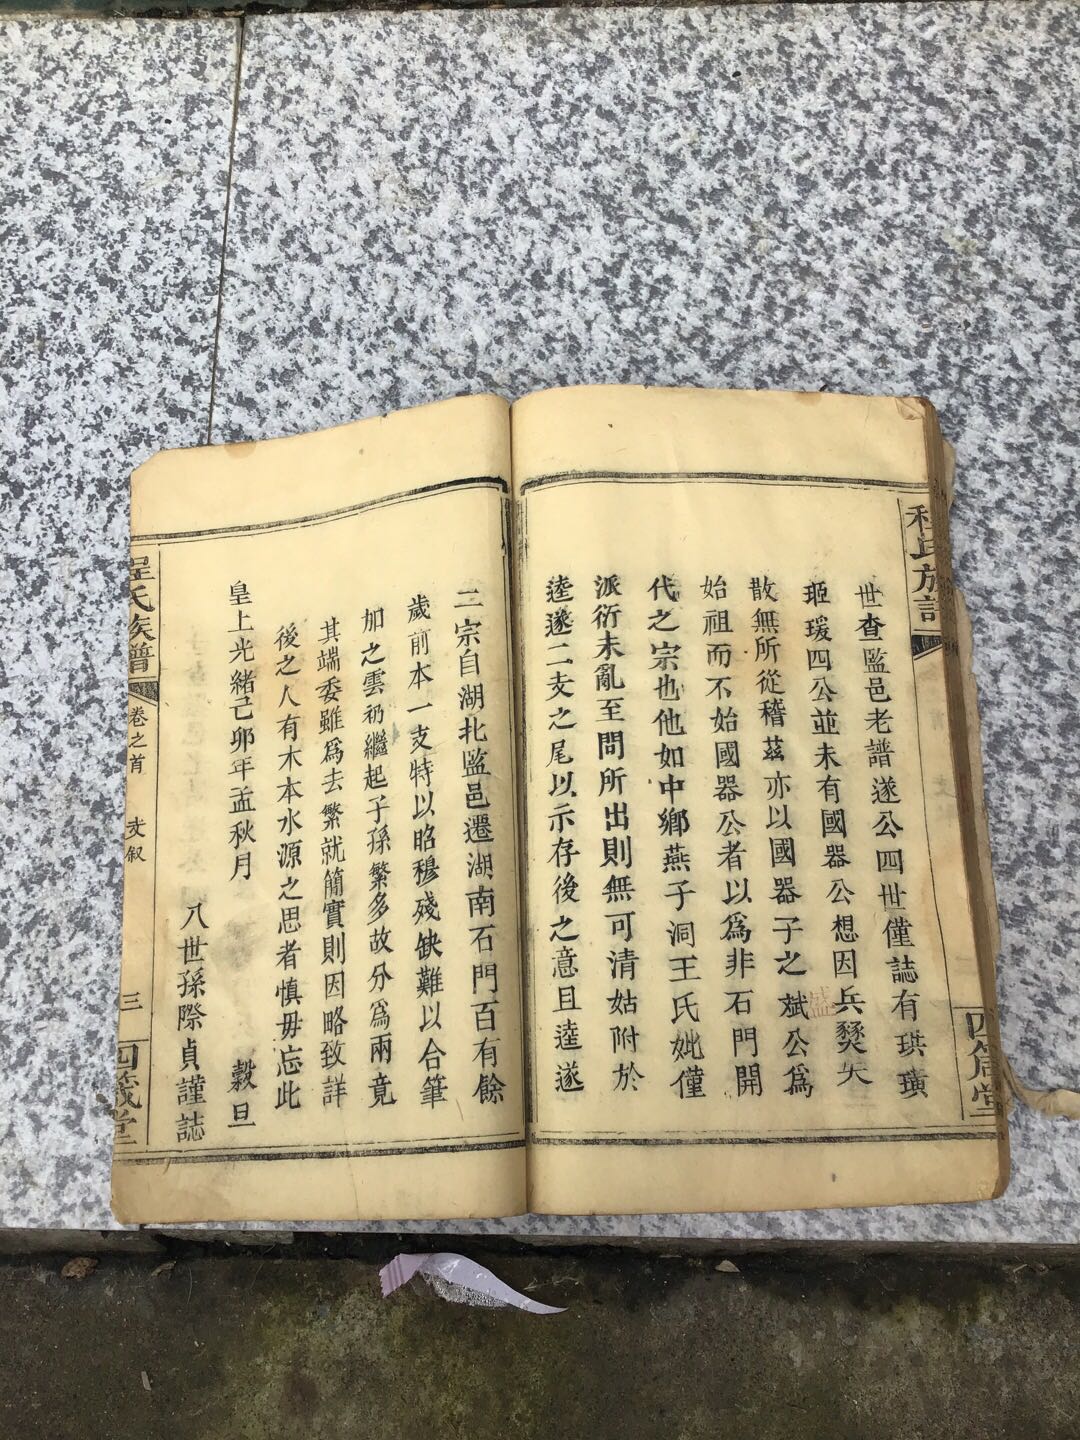 程氏族譜
世查監邑老譜遂公四世僅誌有珙璜
瑖四公並未有國器公想因兵燹失
散無所從稽茲亦以國器子之斌公爲
始祖而不始國器公者以爲非石門開
代之宗也他如中鄉燕子洞王氏妣僅
派衍未亂至問所出則無可清姑附於
逵遂二支之尾以示存後之意且逵遂
三宗自湖北監邑遷湖南石門百有餘
歲前本一支特以昭穆殘缺難以合筆
加之雲礽繼起子孫繁多故分爲兩竟
其端委雖爲去繁就簡實則因略致詳
後之人有木本水源之思者慎毋忘此
皇上光緒己卯年孟秋月 穀旦
八世孫際貞謹誌
程氏族譜 卷之首 支叙 三 四箴堂